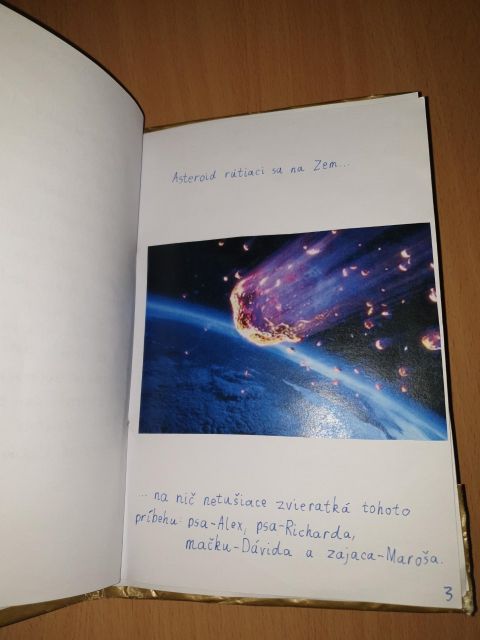 Asteroid rútiaci sa na Zem...
... na nič netušiace zvieratká tohoto
príbehu: psa-Alex, psa-Richarda,
mačku-Dávida a zajaca-Maroša.
3